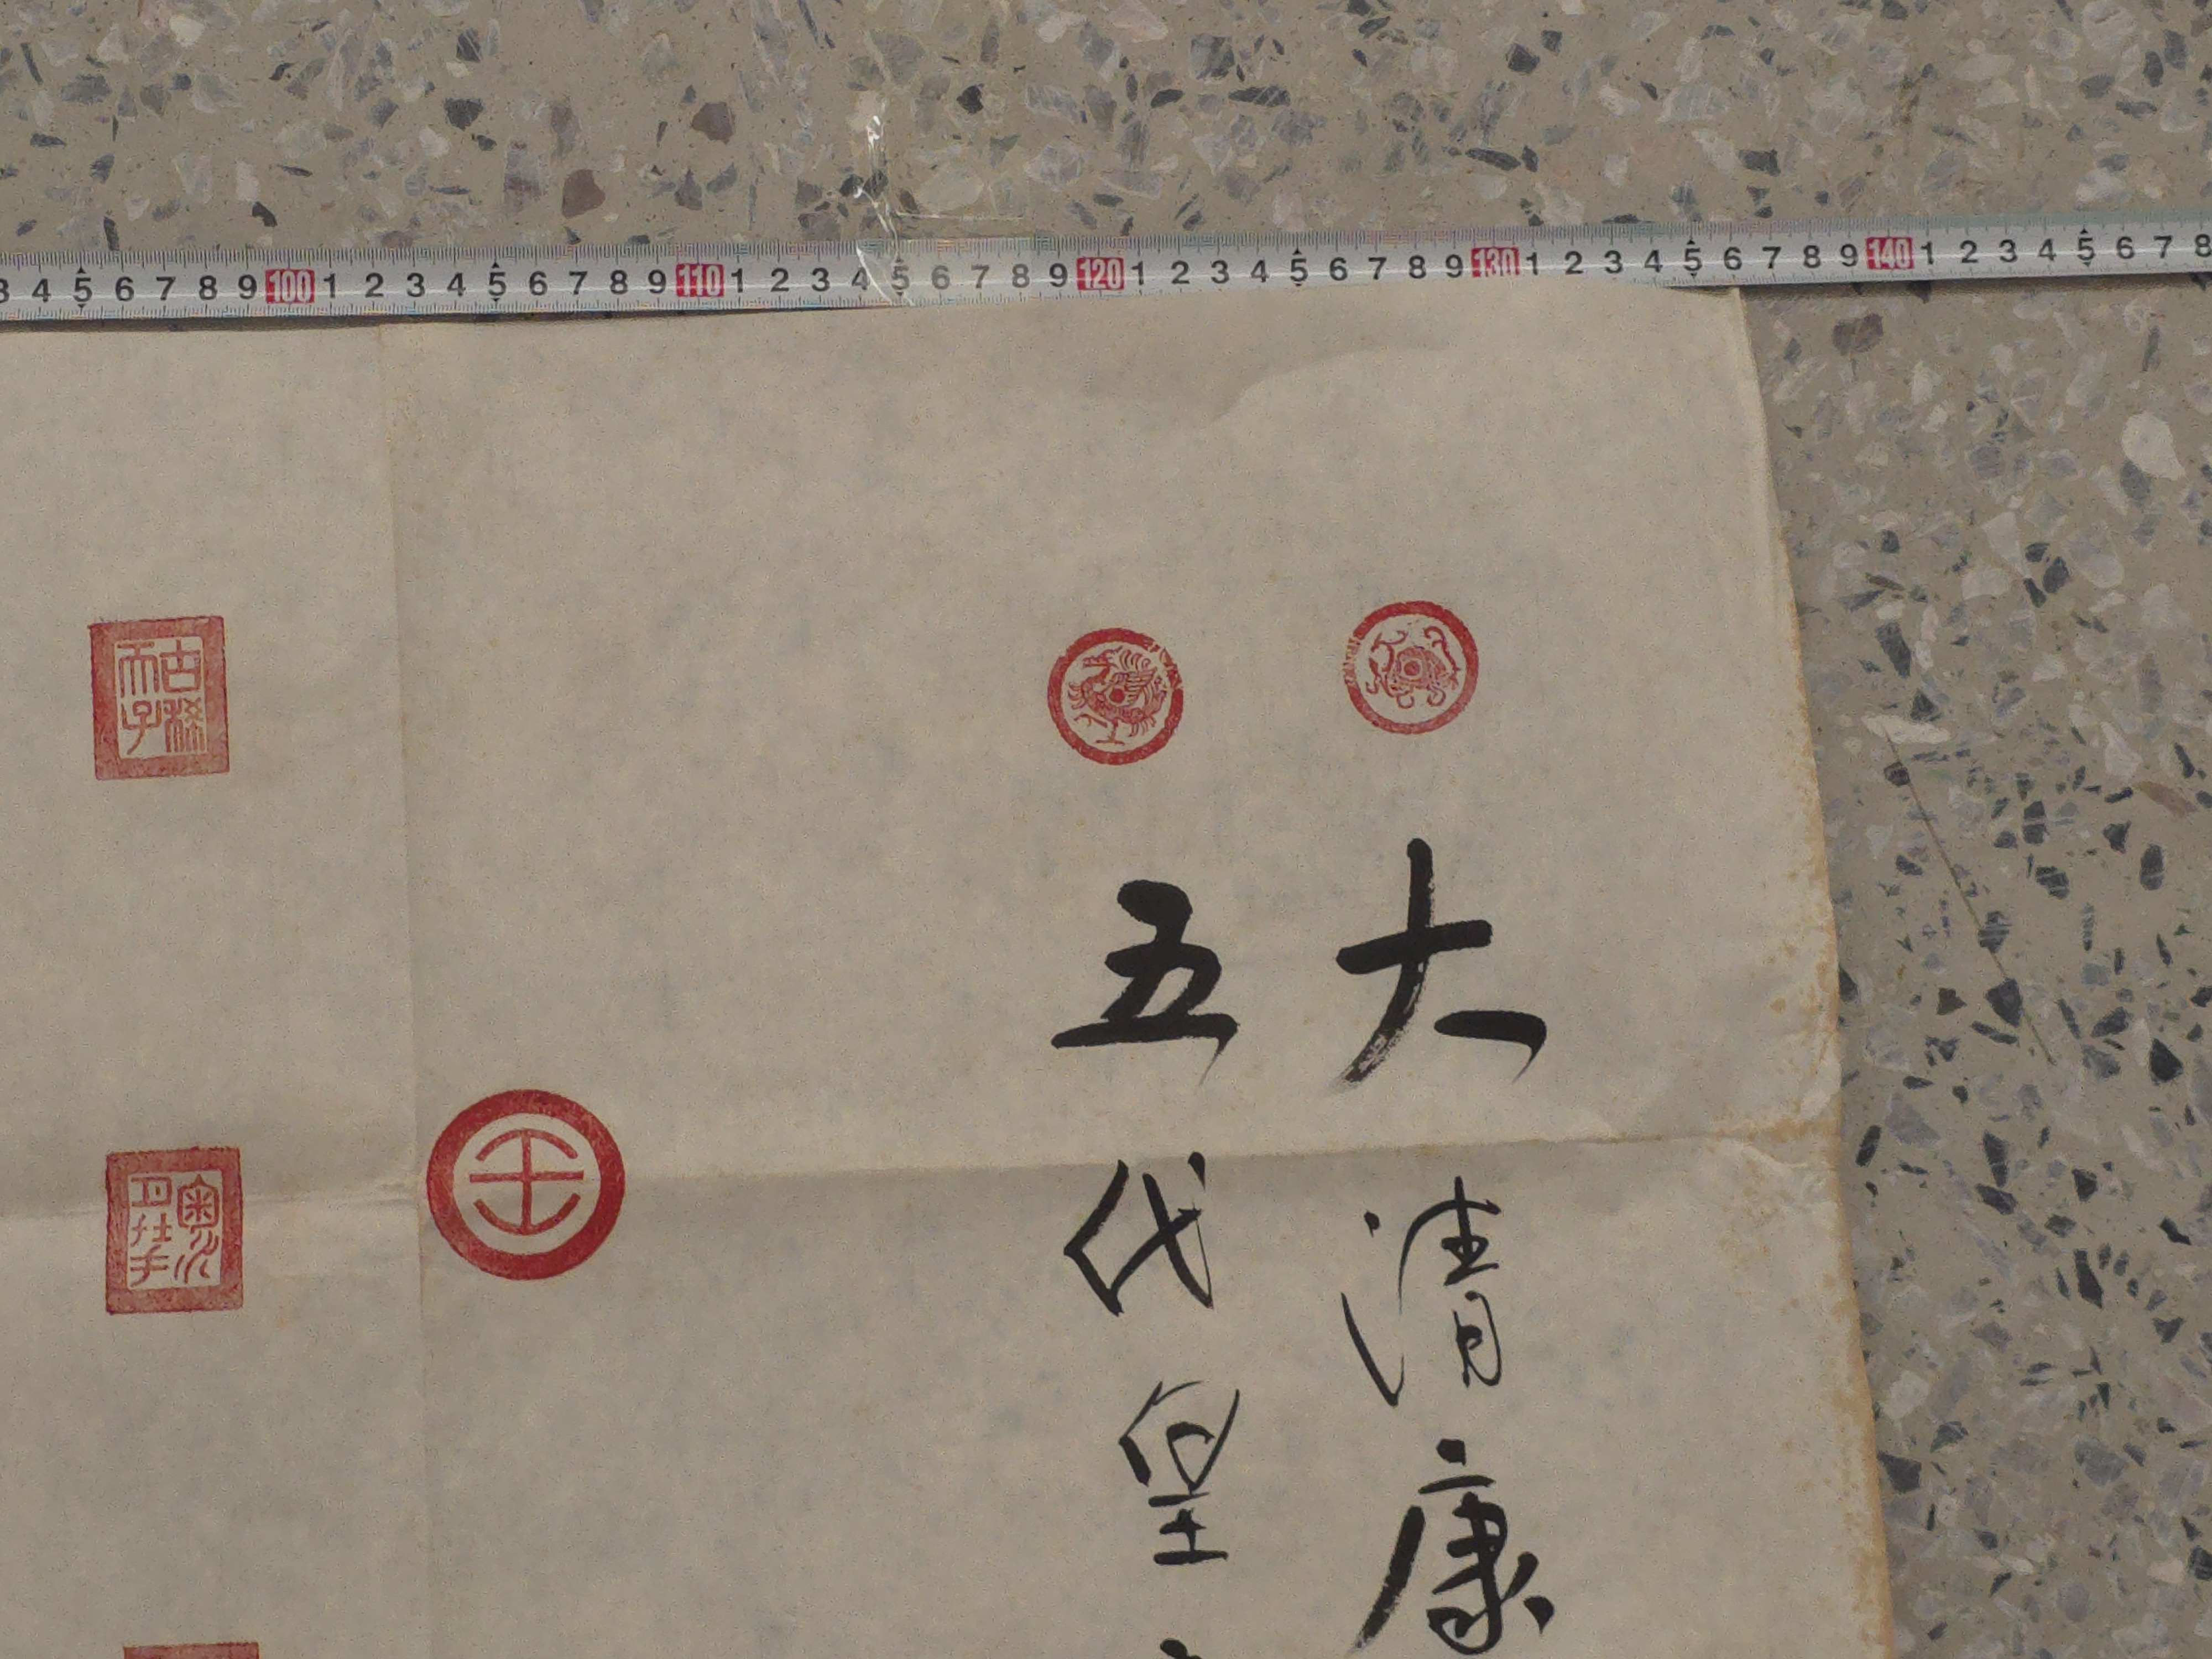 3 4 5 6 7 8 9 100 1 2 3 4 5 6 7 8 9 110 1 2 3 4 5 6 7 8 9 120 1 2 3 4 5 6 7 8 9 130 1 2 3 4 5 6 7 8 9 140 1 2 3 4 5 6 7 8
大清康
五代皇
古稀
天子